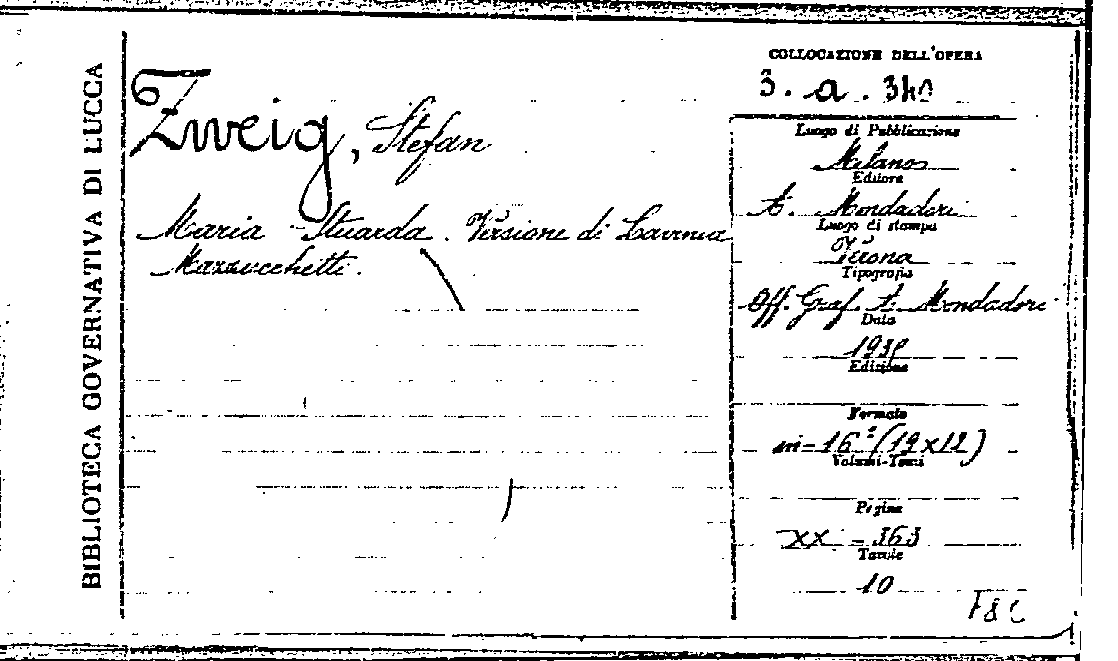 BIBLIOTECA GOVERNATIVA DI LUCCA
Zweig, Stefan
Maria Stuarda. Versione di Lavinia
Mazzucchetti.
COLLOCAZIONE DELL'OPERA
3. a. 340
Luogo di Pubblicazione
Milano
Editore
A. Mondadori
Luogo di stampa
Verona
Tipografia
Off. Graf. A. Mondadori
Data
Edizione
Formato
in-16° (19x12)
Volumi-Tomi
Pagine
XX - 363
Tavole
10